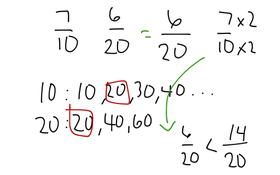 7/10 6/20 = 6/20 7×2/10×2
10 : 10, 20, 30, 40 ...
20 : 20, 40, 60
6/20 < 14/20